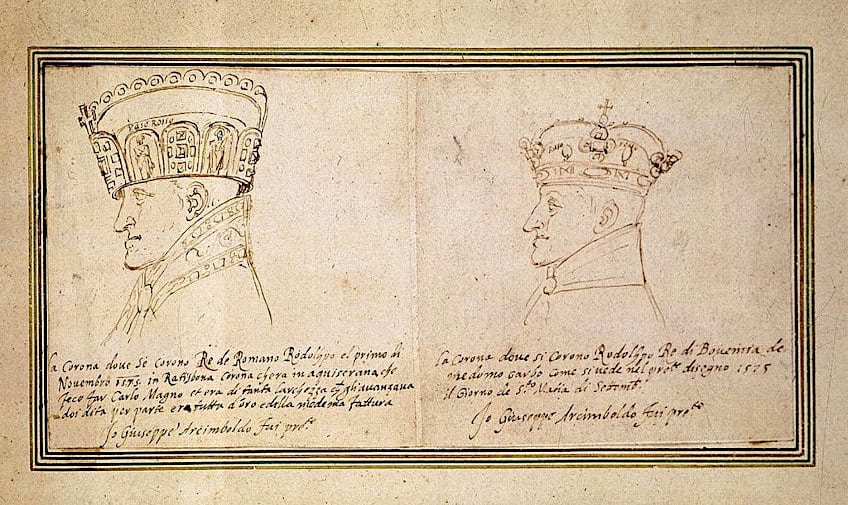 raso Rosso
La Corona dove se corono Re de Romano Rodolffo el primo di
Novembro 1575. in Ratisbona corona ch'era in aquiserana che
feco far Carlo Magno et era di tanta larghezza ch gl'avanzava
doi dita per parte era tutta d'oro e della medema fattura
Io Giuseppe Arcimboldo fui pre.te
raso
La Corona dove si corono Rodolffo Re di Bouemia de
medemo garbo come si vede nel pre.te disegno 1575
il Giorno de S.ta Maria di Setemb.
Io Giuseppe Arcimboldo fui pre.te